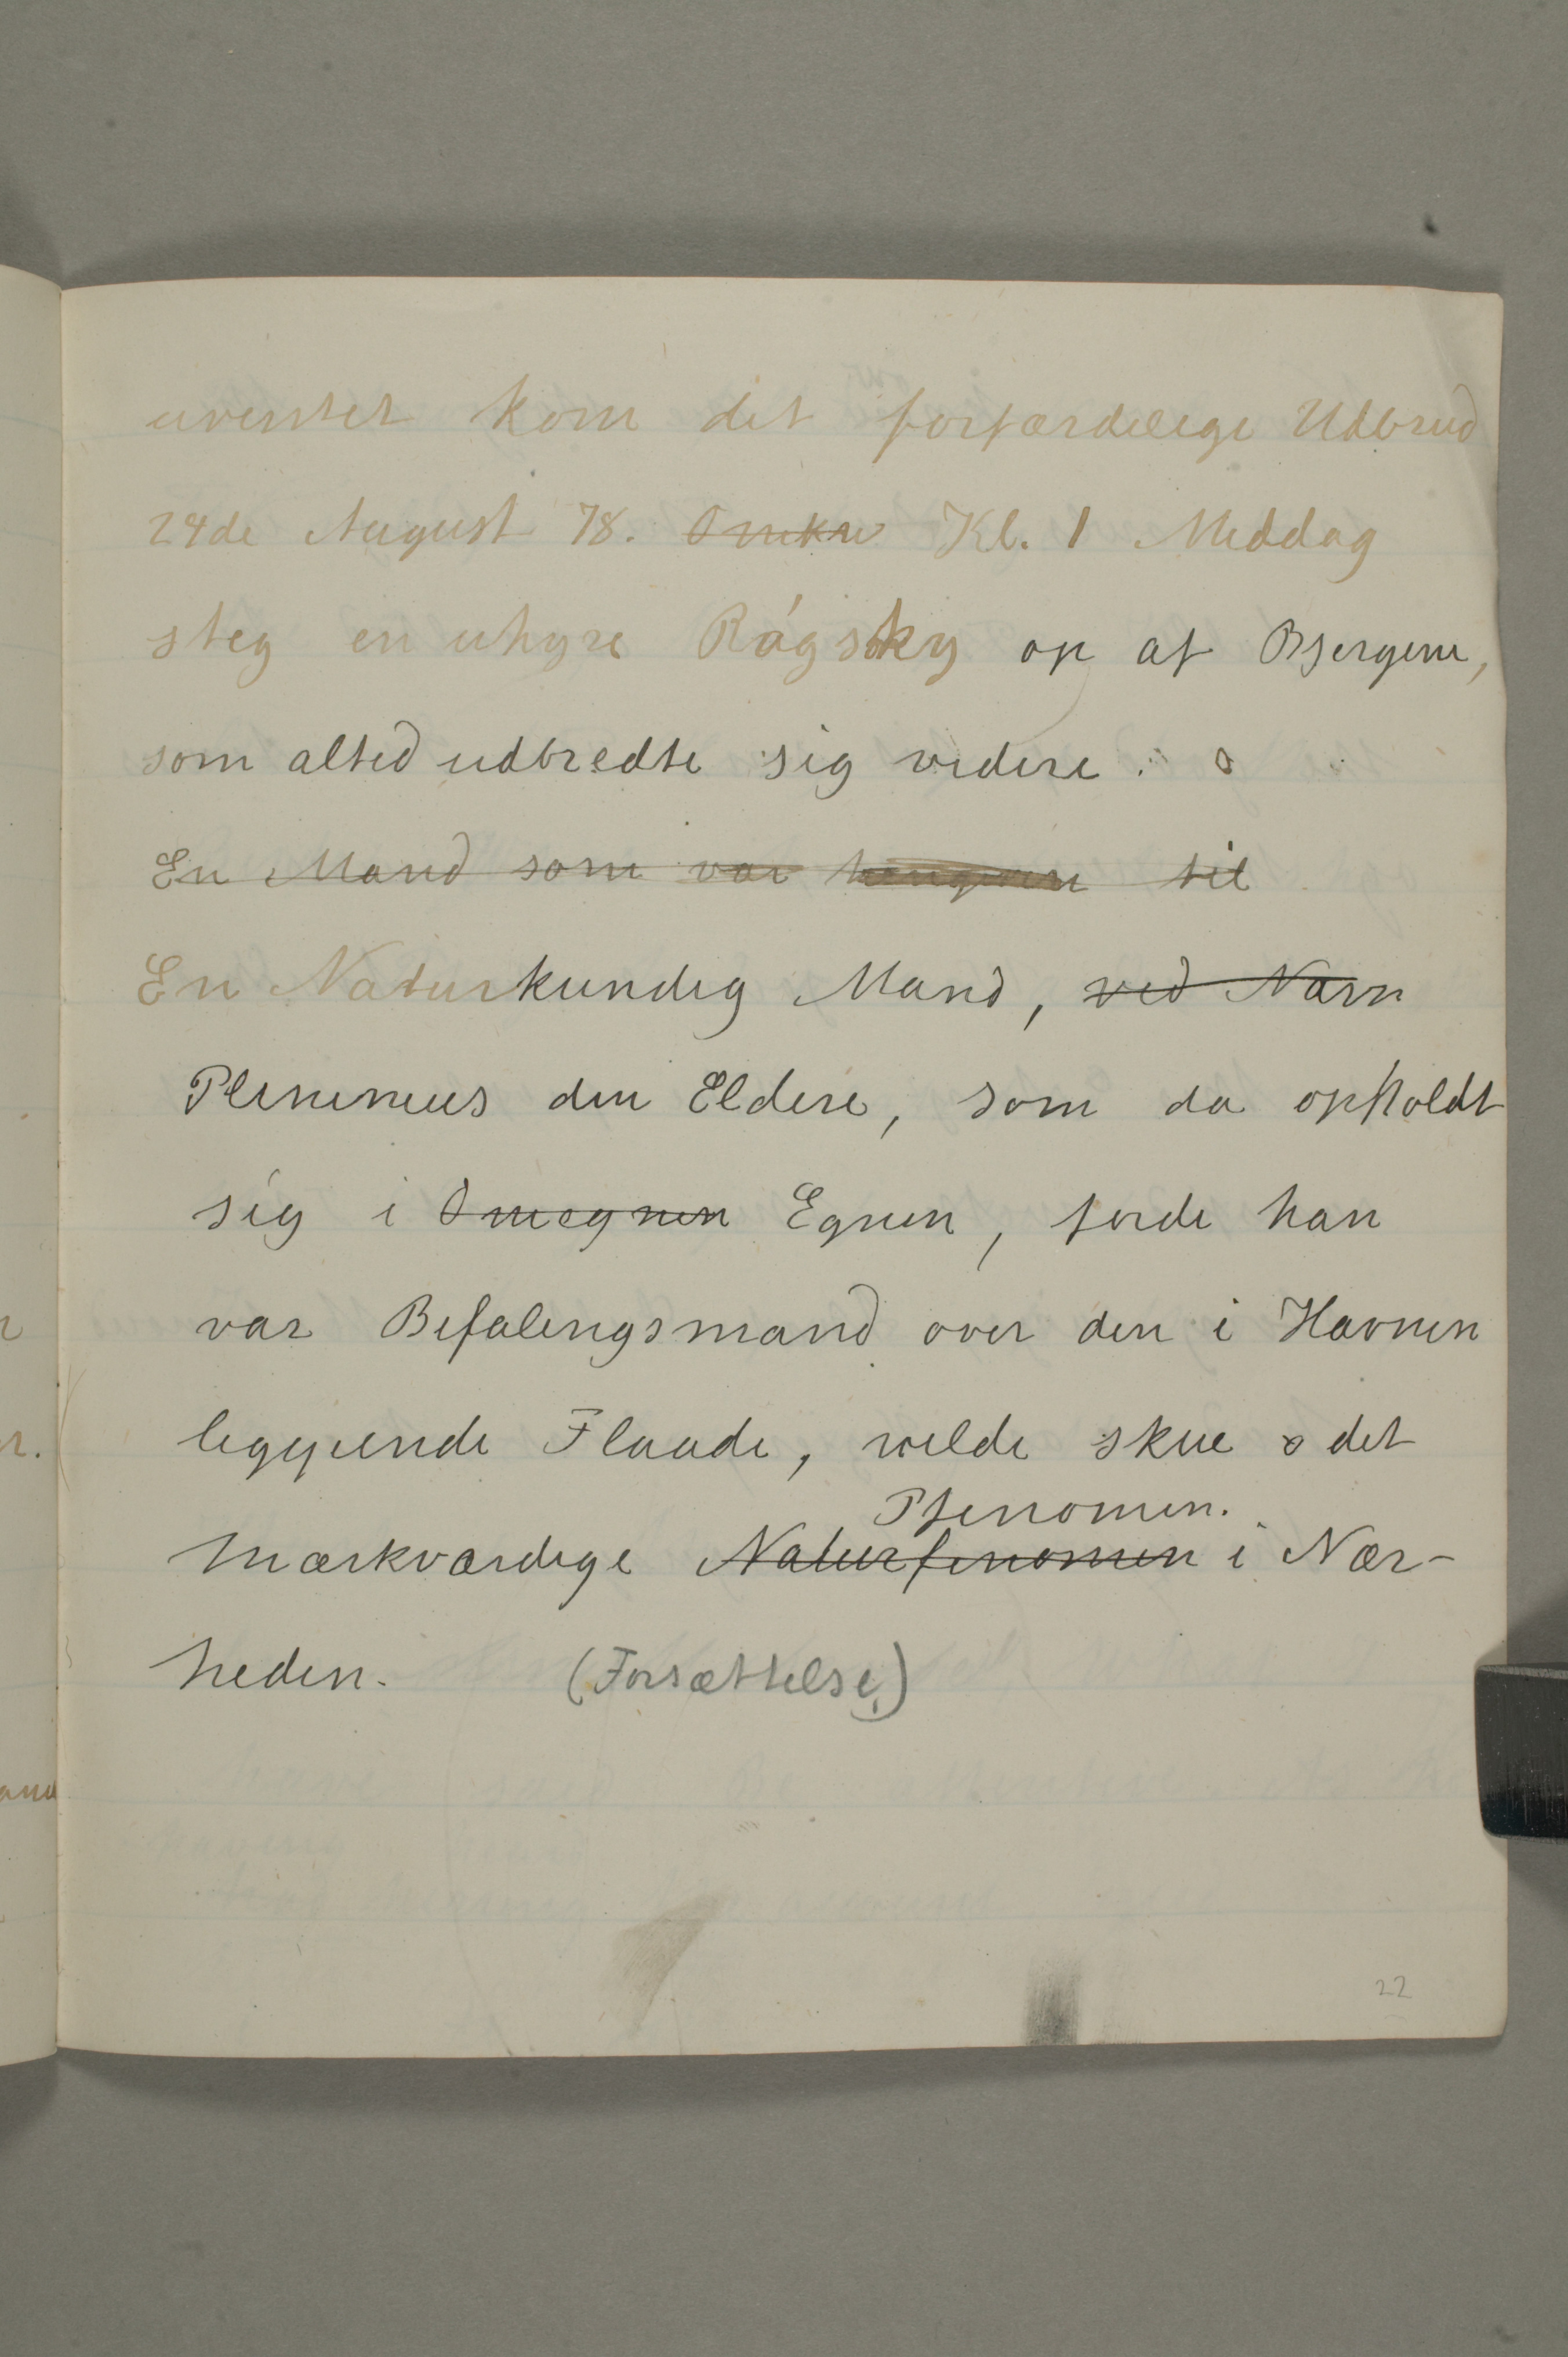 uventet kom det forfærdelige Udbrud
24de August 78. Omkr Kl. 1 Middag
steg en uhyre Røgsky op af Bjergene,
som altid udbredte sig videre.
En Mand som var til
En Naturkundig Mand, ved Navn
Plininius den Eldere, som da opholdt
sig i Omegnen Egnen, forde han
var Befalingsmand over den i Havnen
liggende Flaade, vilde skue det
Phenomen.
mærkværdige Naturfenomen i Nær-
heden. (Forsættelse.)
22